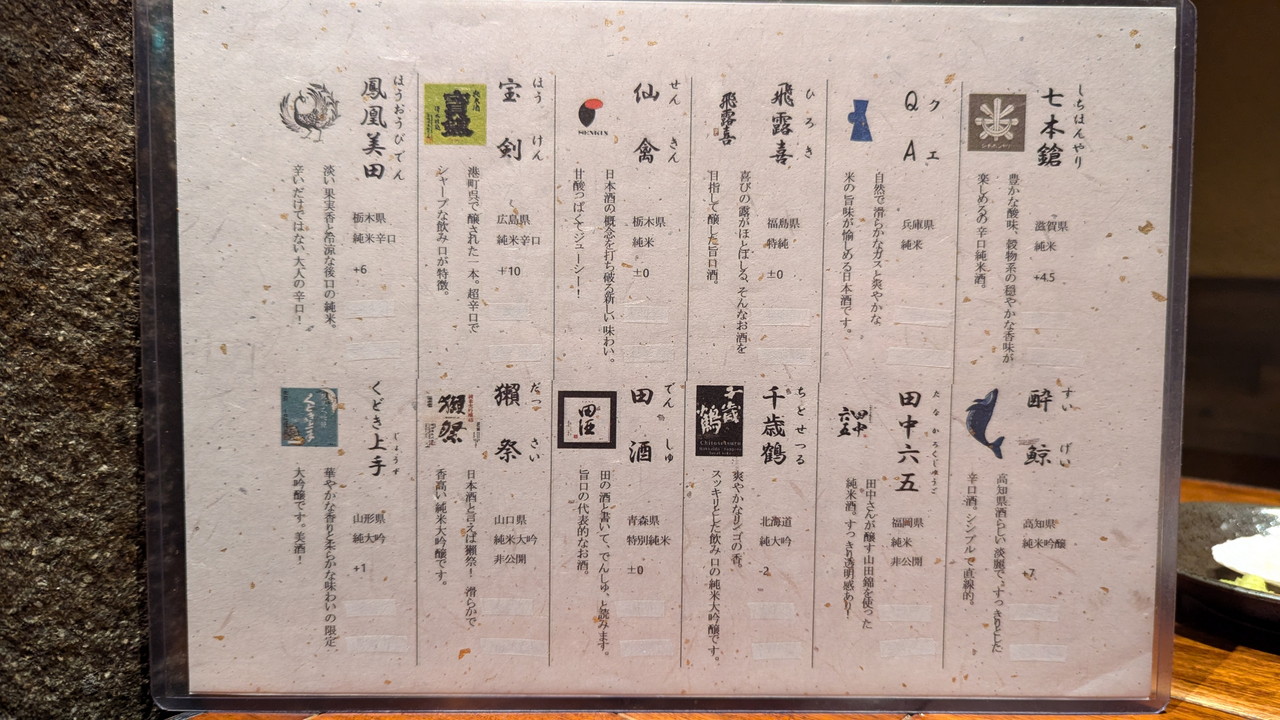 しちほんやり
七本鎗
滋賀県
純米
+4.5
豊かな酸味、穀物系の穏やかな香味が
楽しめるの辛口純米酒。
クエ
QA
兵庫県
純米
自然で滑らかなガスと爽やかな
米の旨味が愉しめる日本酒です。
ひろき
飛露喜
福島県
特純
±0
飛露喜
喜びの露がほとばしる、そんなお酒を
目指して醸した旨口酒。
せんきん
仙禽
栃木県
純米
±0
SENKIN
日本酒の概念を打ち破る新しい味わい。
甘酸っぱくてジューシー!
ほうけん
宝剣
広島県
純米辛口
+10
港町呉で醸された一本。超辛口で
シャープな飲み口が特徴。
ほうおうびでん
鳳凰美田
栃木県
純米辛口
+6
淡い果実香と冷涼な後口の純米。
辛いだけではない大人の辛口!
すいげい
酔鯨
高知県
純米吟醸
+7
高知県酒らしい淡麗で、すっきりとした
辛口酒。シンプルで直線的。
たなかろくじゅうご
田中六五
福岡県
純米
非公開
田中
六五
田中さんが醸す山田錦を使った
純米酒。すっきり透明感あり!
ちとせつる
千歳鶴
北海道
純大吟
-2
千歳
鶴
爽やかなリンゴの香。
スッキリとした飲み口の純米大吟醸です。
でんしゅ
田酒
青森県
特別純米
±0
田酒
田の酒と書いて、でんしゅ、と読みます。
旨口の代表的なお酒。
だっさい
獺祭
山口県
純米大吟
非公開
獺祭
日本酒と言えば獺祭! 滑らかで
香高い純米大吟醸です。
くどき上手
じょうず
山形県
純大吟
+1
くどき上手
華やかな香りと柔らかな味わいの限定
大吟醸です。美酒!